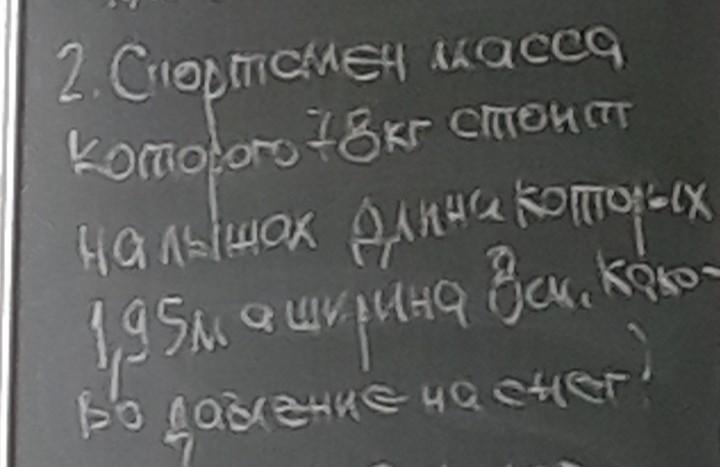 2. Спортсмен масса
которого 78кг стоит
на лышах длина которых
1,95м а ширина 8см. Како-
во давление на снег?